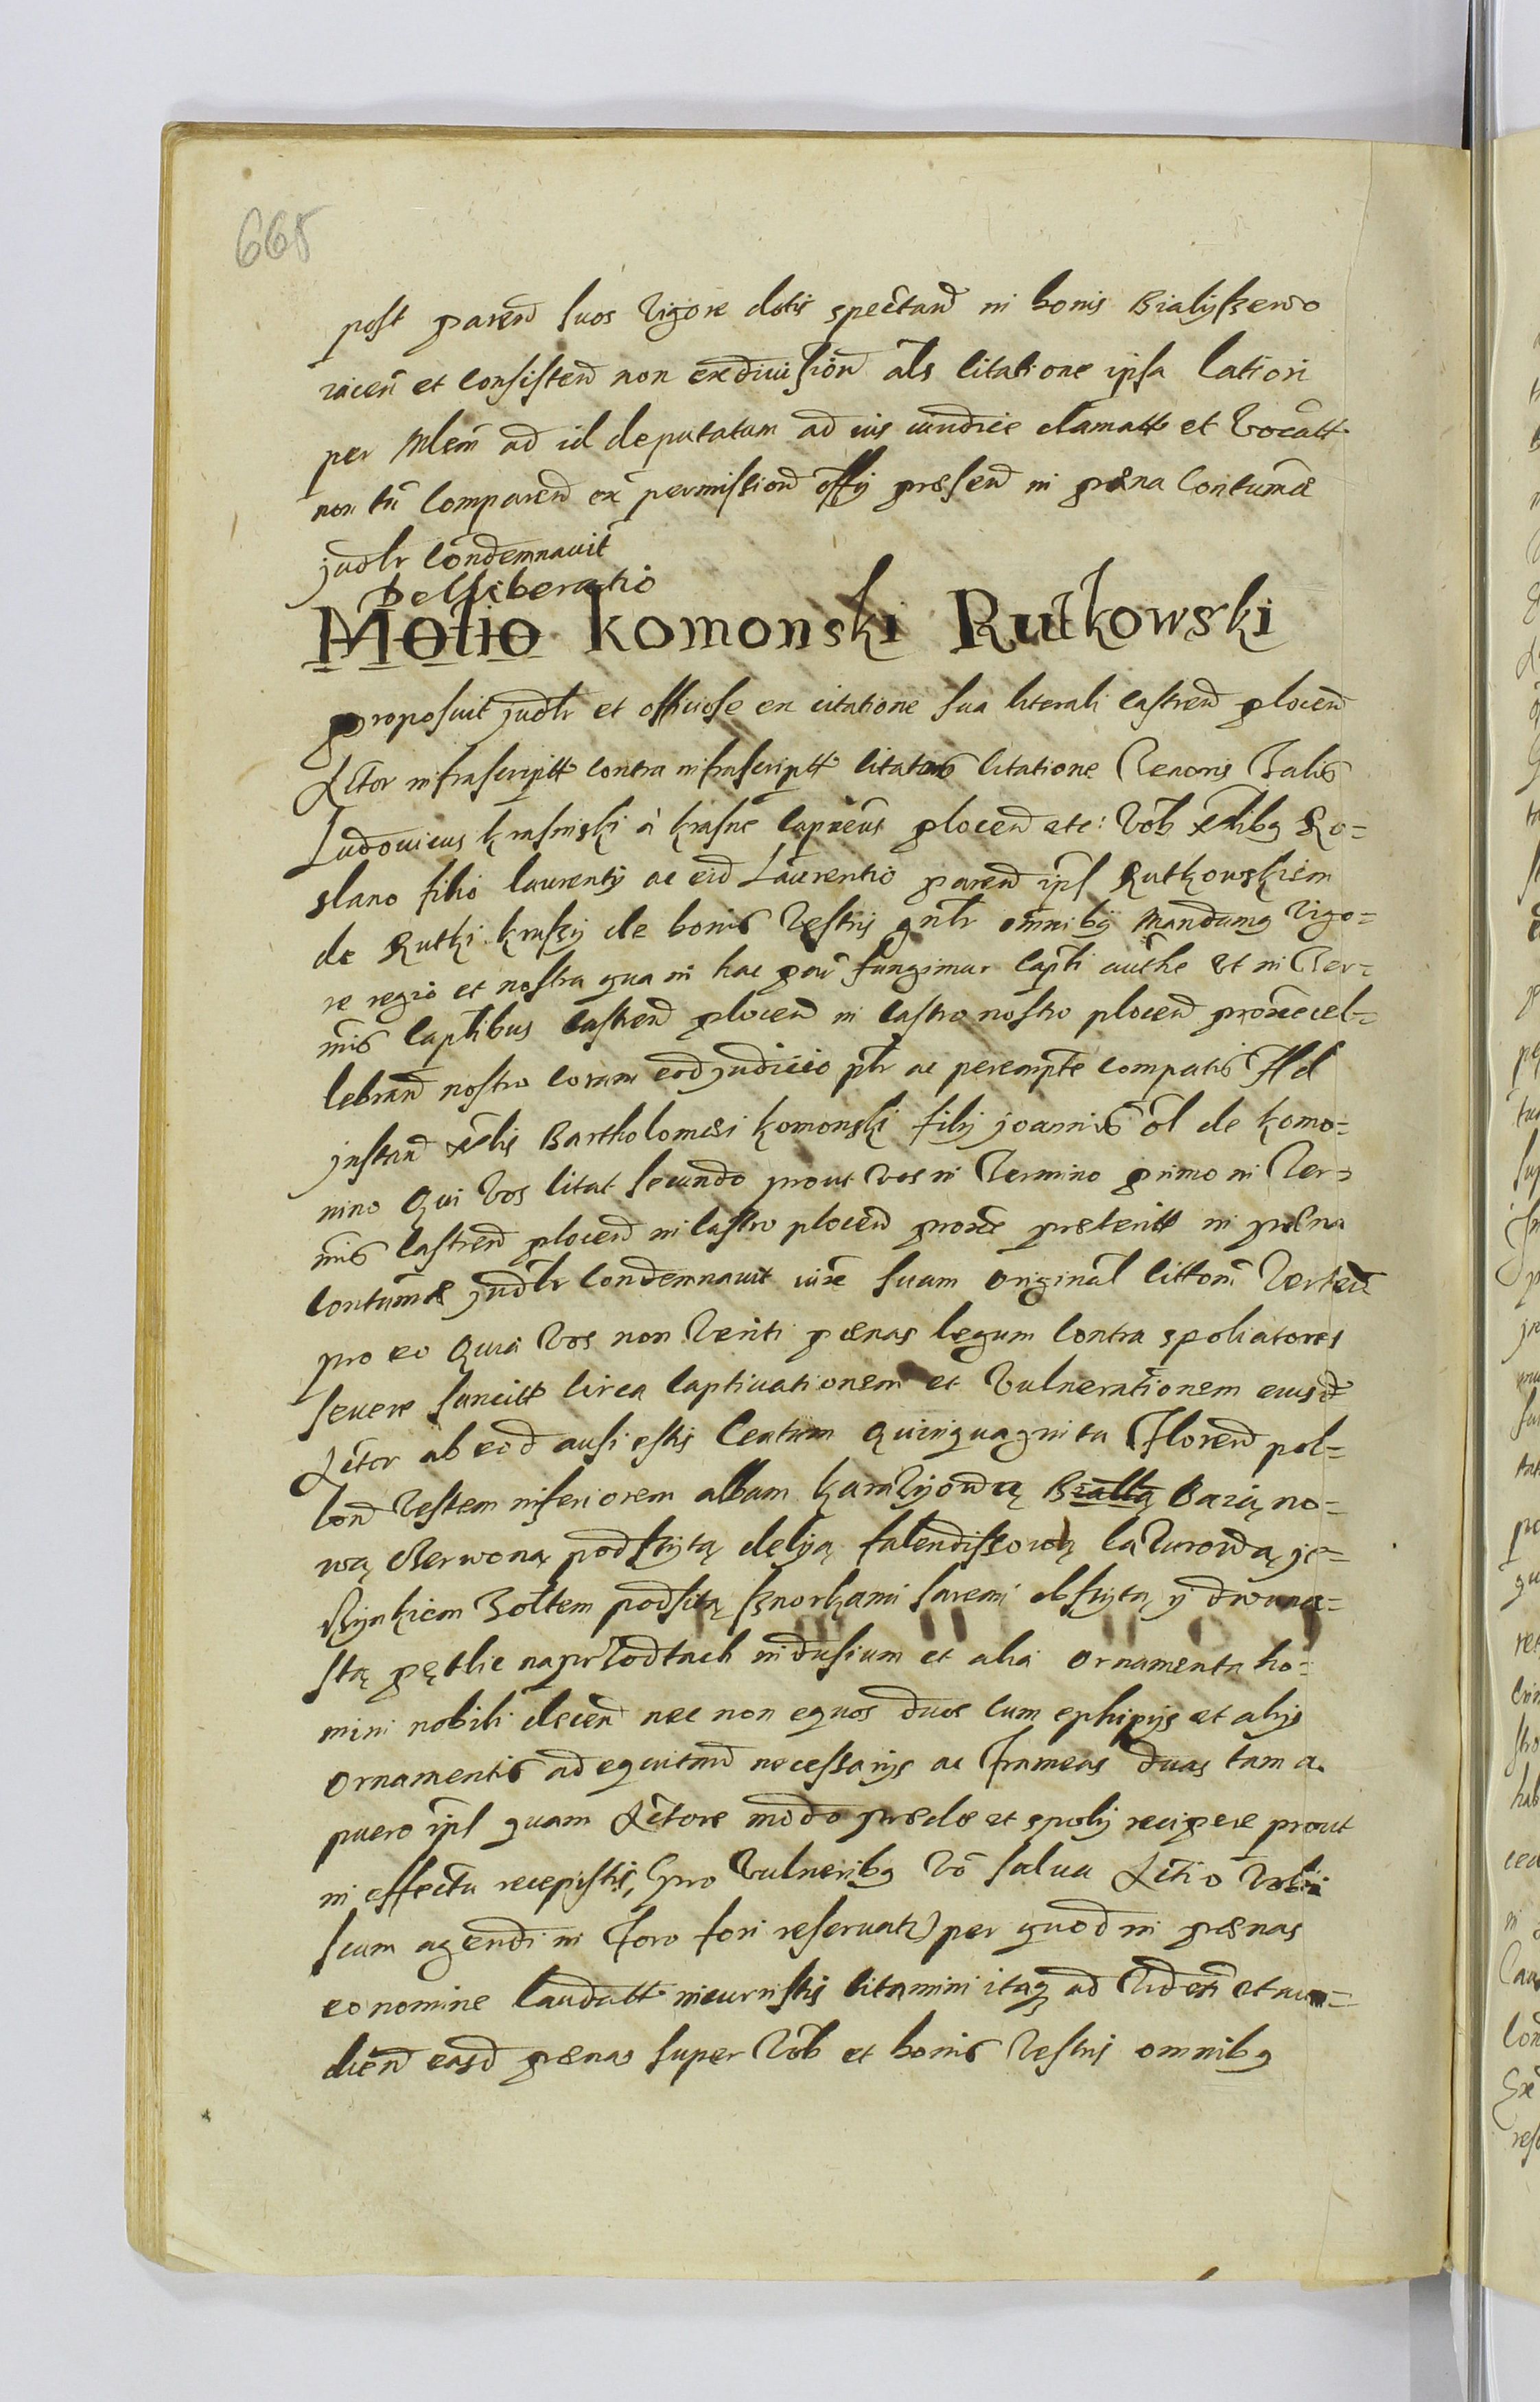 668
post parend suos vigore dotis spectand in bonis Bialyszewo
iacen et consistend non exdiuision als citatione ipsa latiori
per Mlem ad id deputatum ad ius iundice clamatt et vocatt
non tn comparend ex permissiond offij præsend in pæna contumæ
judlr condemnauit
Delliberatio
Motio Komonski Rutkowski
proposuit judlr et officiose ex citatione sua literali castrend plocend
Actor infrascriptt contra infrascriptt citatos citatione Tenoris Talis
Ludouicus Krasinski à Krasne capneus plocend etc: Vob Nblibq Ro=
slano filio laurentij ac eid Laurentio parend ipsi Rutkowskiem
de Rutki Krussy de bonis vestris gnlr omnibq Mandamq vigo=
re regio et nostra qua in hac par fungimur captli authe Vt in Ter=
mis captlibus castrend plocend in castro nostro plocend proxe cel=
lebrand nostro coram eod judicio plr ac perempte compatis Ad
jnstand Nblis Bartholomæi Komonski filij joannis ol de Komo=
nino Qui Vos citat secundo prout vos in Termino primo in Ter=
mis castrend plocend in castro plocend proxe præteritt in pæna
contumæ judlr condemnauit iuxe suam original cittom Verten
pro eo Quia Vos non Veriti pænas legum contra spoliatores
seuere sancitt circa captiuationem et Vulnerationem eiusd
Actor ab eod ausi estis Centum Quinquaginta Florend pol=
lond Vestem inferiorem albam Karazijową Białłą Bazią no=
wą czerwoną podszytą delyą falendiszową lazurową je=
dzynkiem zoltem podsitą sznorkami saremi obszytą ÿ dwuna=
stą pętlic naprzodtach indusium et alia ornamenta ho=
mini nobili decen nec non equos duos cum ephipijs et alijs
ornamentis ad equitand necessarijs ac Frameas duas tam a
puero ipsi quam Actore modo prædæ et spolij recipere prout
in effectu recepistis, (pro Vulneribq Vo salua Actio Vobi
scum agendi in Foro fori reseruatt) per quod in pænas
eo nomine laudatt incurristis citamini itaq ad Viden et au=
diend easd pænas super Vob et bonis Vestris omnibq